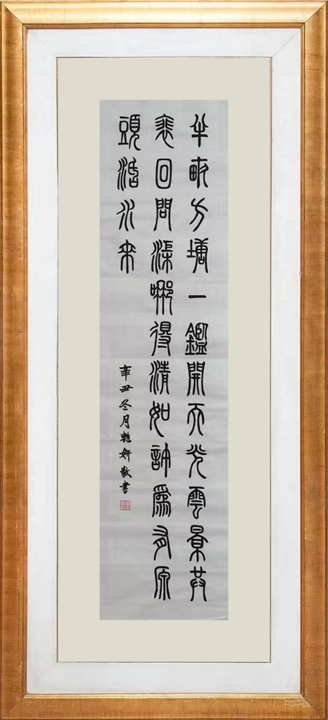 半畝方塘一鑑開天光雲景共
裵回問渠那得清如許爲有原
頭活水來
辛丑冬月妍敬書